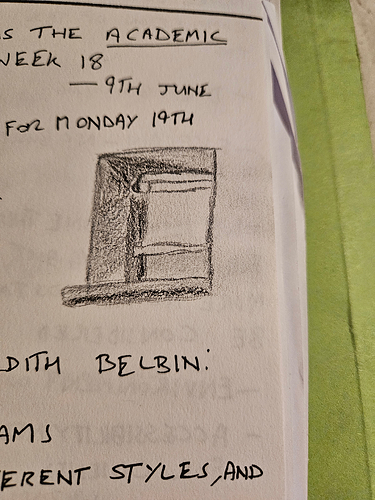 S THE ACADEMIC
WEEK 18
— 9TH JUNE
FOR MONDAY 19TH
DITH BELBIN:
AMS
ERENT STYLES, AND